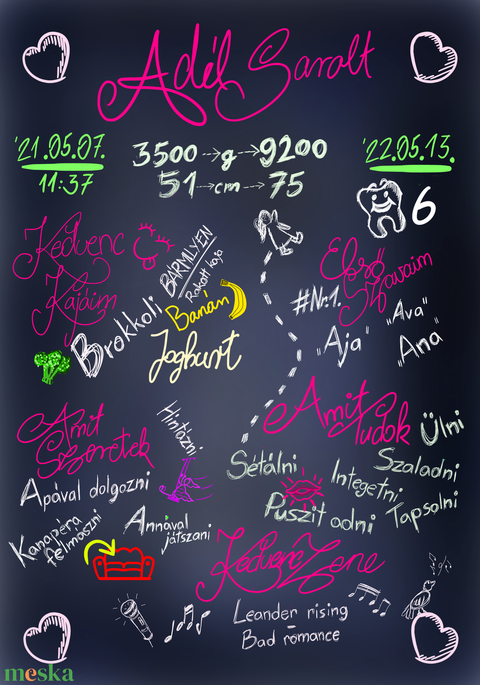 Adél Sarolt
'21.05.07.
11:37
3500 → g → 9200
51 → cm → 75
'22.05.13.
6
Kedvenc
Kajáim
BÁRMILYEN
Rakott kaja
Brokkoli
Banán
Joghurt
Első
Szavaim
#Nr.1.
"Ava"
"Aja"
"Ana"
Amit
Szeretek
Hintázni
Apával dolgozni
Kanapéra
felmászni
Annával
játszani
Amit
tudok
Ülni
Sétálni
Szaladni
Integetni
Puszit adni
Tapsolni
Kedvenc Zene
Leander rising
Bad romance
meska